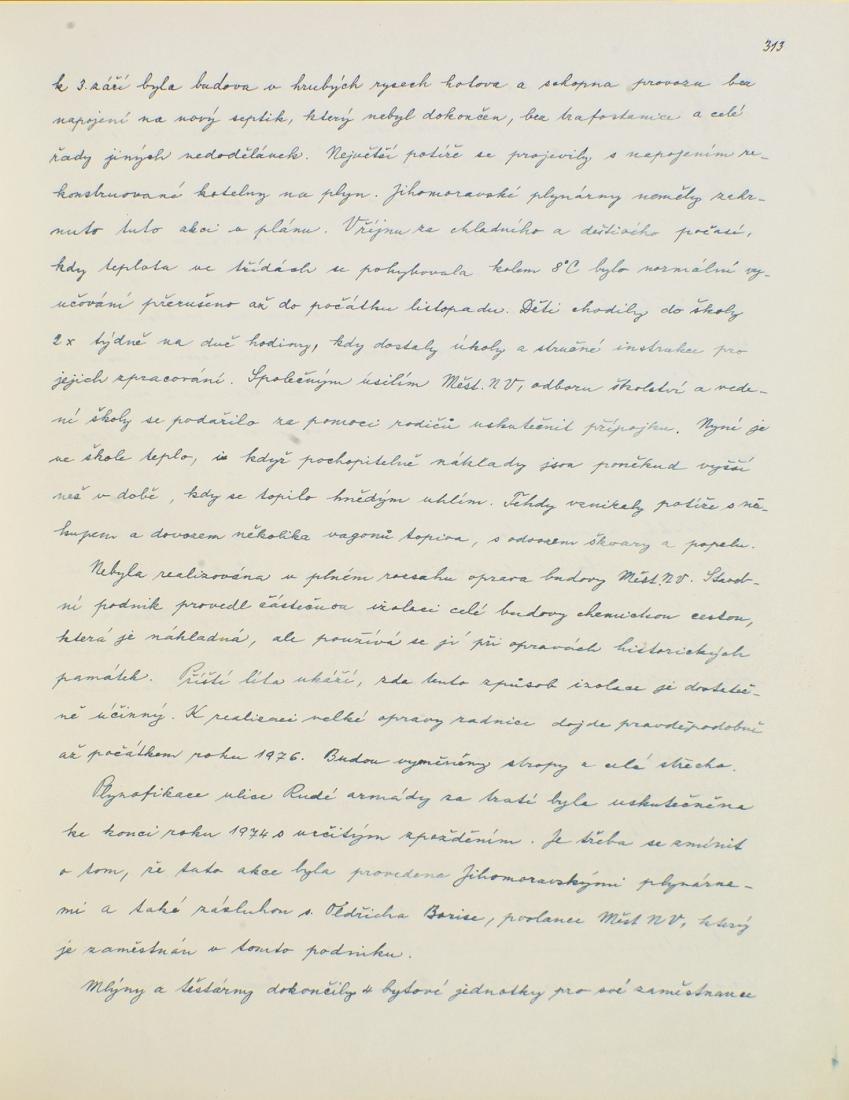 313
k 3. září byla budova v hrubých rysech hotova a schopna provozu bez
napojení na nový septik, který nebyl dokončen, bez trafostanice a celé
řady jiných nedodělávek. Největší potíže se projevily s napojením re-
konstruované kotelny na plyn. Jihomoravské plynárny neměly zahr-
nuto tuto akci v plánu. V říjnu za chladného a deštivého počasí,
kdy teplota ve třídách se pohybovala kolem 8°C bylo normální vy-
učování přerušeno až do počátku listopadu. Děti chodily do školy
2x týdně na dvě hodiny, kdy dostaly úkoly a stručné instrukce pro
jejich zpracování. Společným úsilím Měst. NV, odboru školství a vede-
ní školy se podařilo za pomoci rodičů uskutečnit přípojku. Nyní je
ve škole teplo, i když pochopitelně náklady jsou poněkud vyšší
než v době, kdy se topilo hnědým uhlím. Tehdy vznikaly potíže s ná-
kupem a dovozem několika vagonů topiva, s odvozem škváry a popelu.
Nebyla realizována v plném rozsahu oprava budovy Měst. NV. Staveb-
ní podnik provedl částečnou izolaci celé budovy chemickou cestou,
která je nákladná, ale používá se jí při opravách historických
památek. Příští léta ukáží, zda tento způsob izolace je dostateč-
ně účinný. K realizaci velké opravy radnice dojde pravděpodobně
až počátkem roku 1976. Budou vyměněny stropy a celá střecha.
Plynofikace ulice Rudé armády za tratí byla uskutečněna
ke konci roku 1974 s určitým zpožděním. Je třeba se zmínit
o tom, že tato akce byla provedena Jihomoravskými plynárna-
mi a také zásluhou s. Oldřicha Borise, poslance Měst NV, který
je zaměstnán v tomto podniku.
Mlýny a těstárny dokončily 4 bytové jednotky pro své zaměstnance